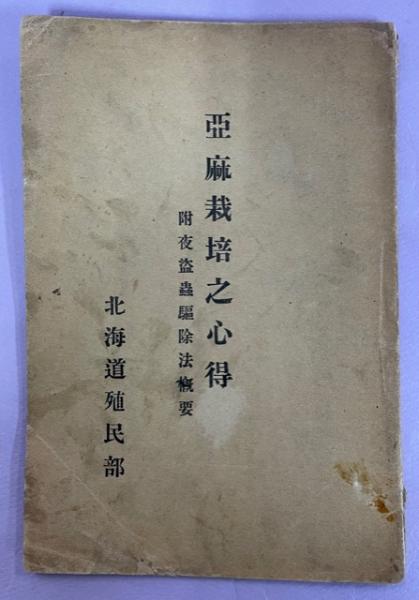 亞麻栽培之心得
附夜盜蟲驅除法概要
北海道殖民部